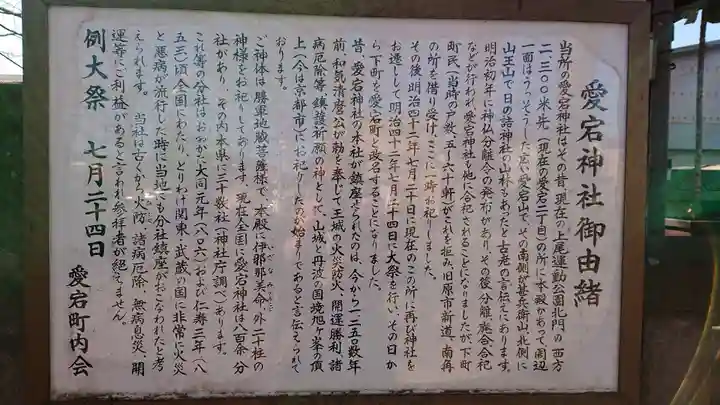 愛宕神社御由緒
当所の愛宕神社はその昔、現在の上尾運動公園北門の西方
二、三〇〇米先（現在の愛宕二丁目）の所に本殿があって周辺
一面はうっそうとした思い愛宕山で、その南側が甚兵衛山、北側に
山王山で日の諸神社の山林もあったと古老の言伝てにあります。
明治初年に神仏分離令の発布があり、その後分離、廃合合祀
などが行われ愛宕神社も他に合祀されることになりましたが、下町
町民（当時の戸数、五〜六十軒）がこれを拒み旧原市新道、南再
の所を借り受け、ここに一時お祀りしました。
その後明治四十二年七月二十日に現在のこの所に再び神社を
お遷しして明治四十二年七月二十四日に大祭を行い、その日か
ら下町を愛宕町と改名することになりました。
昔、愛宕神社の本社が鎮座されたのは、今から一二五〇数年
前、和気清磨公が勅を奉じて、王城の火災防火、開運勝利、諸
病厄除等、鎮護祈願の神として、山城と丹波の国境旭ヶ峯の頂
上（今は京都市）にお祀りしたのが始まりであると言伝えられて
おります。
ご神体は勝軍地蔵菩薩様で、本殿、伊邪那美命、外二十柱の
神様をお祀りしてあります。現在全国に愛宕神社は八百余分
社があり、その内本県に三十数社（神社庁調べ）あります。
これ等の分社はおおかた大同元年（八〇六）および仁寿三年（八
五三）頃全国にわたり、とりわけ関東、武蔵の国に非常に火災
と悪病が流行した時に当地にも分社鎮座がおこなわれたと考
えられます。　当社は古くから火防、諸病厄除、無病息災、開
運等にご利益があると言われ参拝者が絶えません。
例大祭　七月二十四日
愛宕町内会